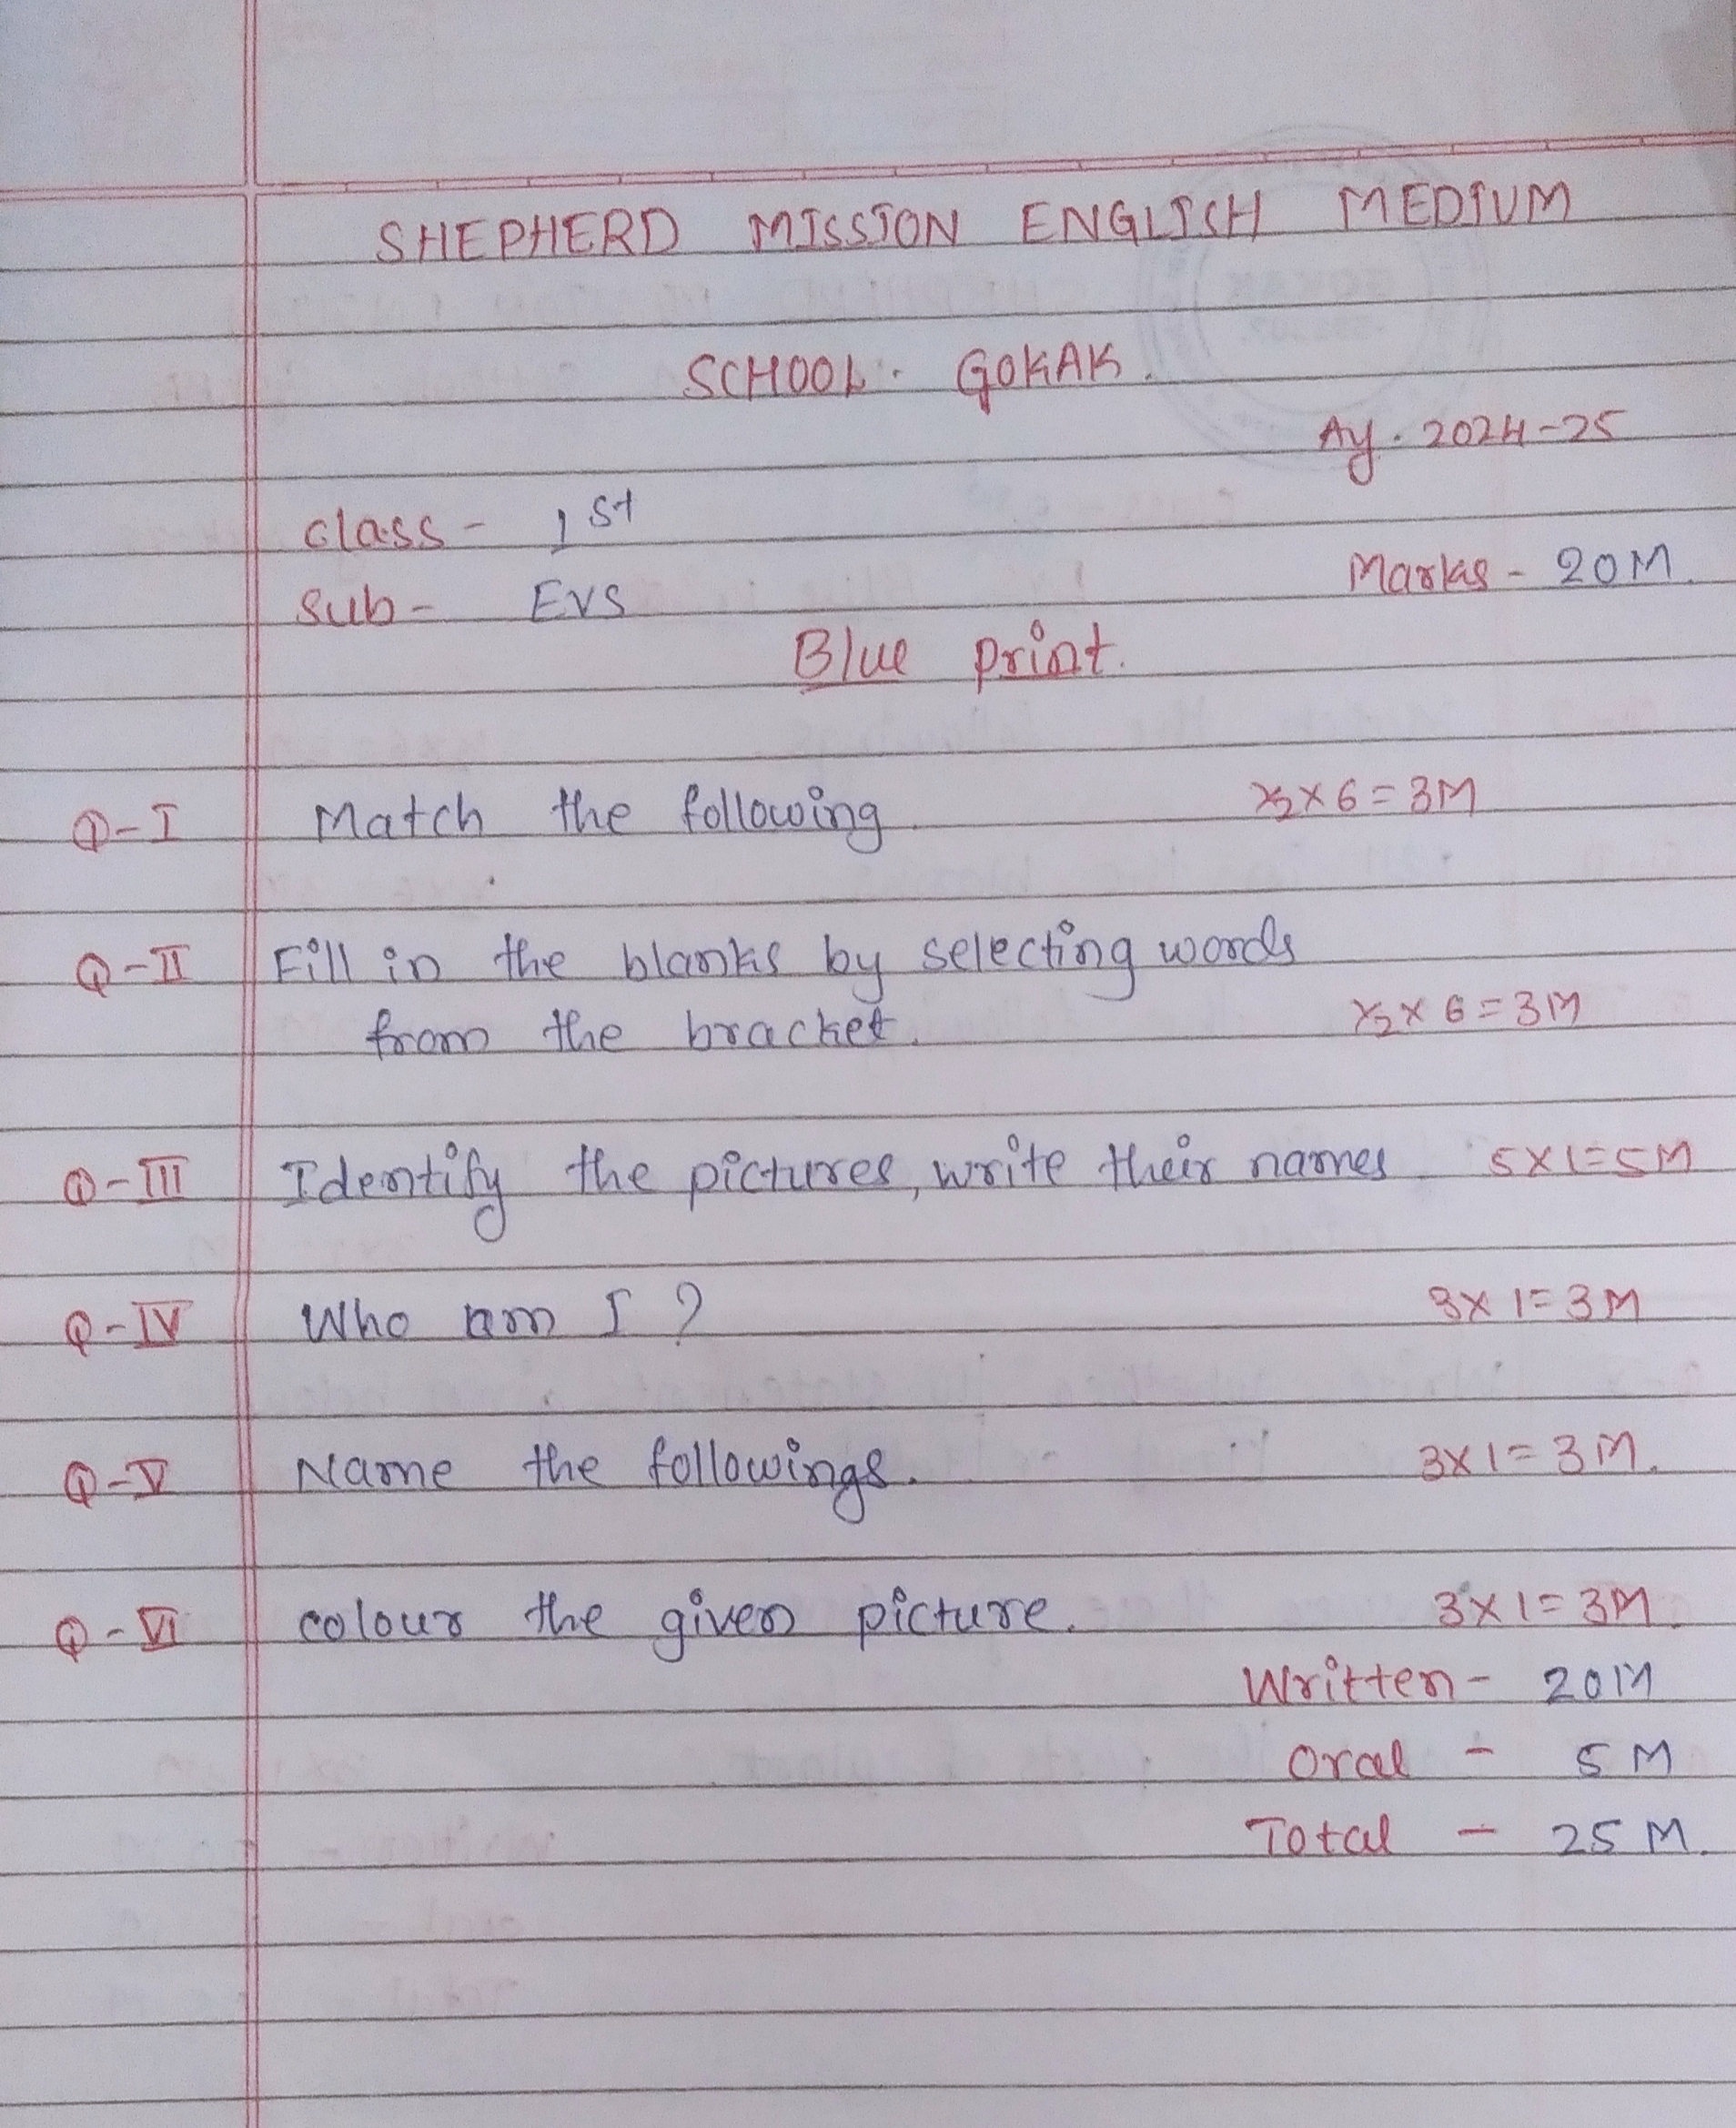 SHEPHERD MISSION ENGLISH MEDIUM
SCHOOL. GOKAK.
Ay. 2024-25
class - 1st
Marks - 20M.
Sub - EVS
Blue print.
Q-I Match the following. ½ x 6 = 3M
Q-II Fill in the blanks by selecting words
from the bracket. ½ x 6 = 3M
Q-III Identify the pictures, write their names. 5 x 1 = 5M
Q-IV Who am I ? 3 x 1 = 3M
Q-V Name the followings. 3 x 1 = 3M.
Q-VI colour the given picture. 3 x 1 = 3M.
Written - 20M
Oral - 5M
Total - 25M.